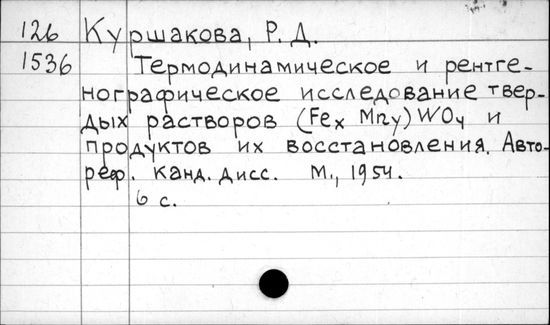 126 Куршакова, Р. Д.
1536 Термодинамическое и рентге-
нографическое исследование твер-
дых растворов (Feₓ Mnᵧ) WO₄ и
продуктов их восстановления. Авто-
реф. канд. дисс. М., 1954.
6 с.